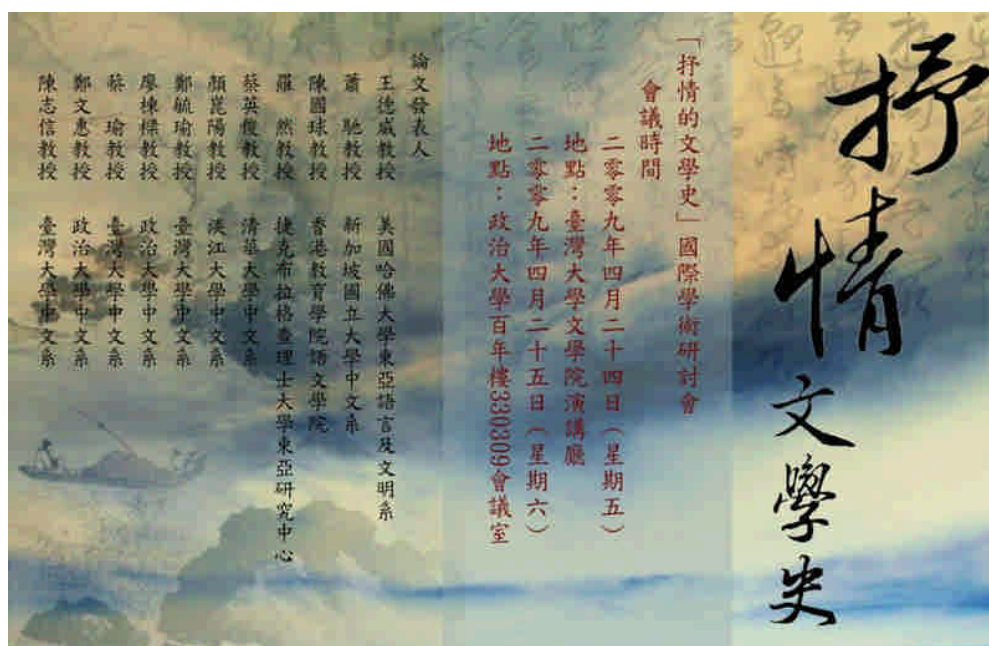 抒情文學史
「抒情的文學史」國際學術研討會
會議時間
二零零九年四月二十四日（星期五）
地點：臺灣大學文學院演講廳
二零零九年四月二十五日（星期六）
地點：政治大學百年樓330309會議室
論文發表人
王德威教授 美國哈佛大學東亞語言及文明系
蕭 馳教授 新加坡國立大學中文系
陳國球教授 香港教育學院語文學院
羅 然教授 捷克布拉格查理士大學東亞研究中心
蔡英俊教授 清華大學中文系
顏崑陽教授 淡江大學中文系
鄭毓瑜教授 臺灣大學中文系
廖棟樑教授 政治大學中文系
蔡 瑜教授 臺灣大學中文系
鄭文惠教授 政治大學中文系
陳志信教授 臺灣大學中文系